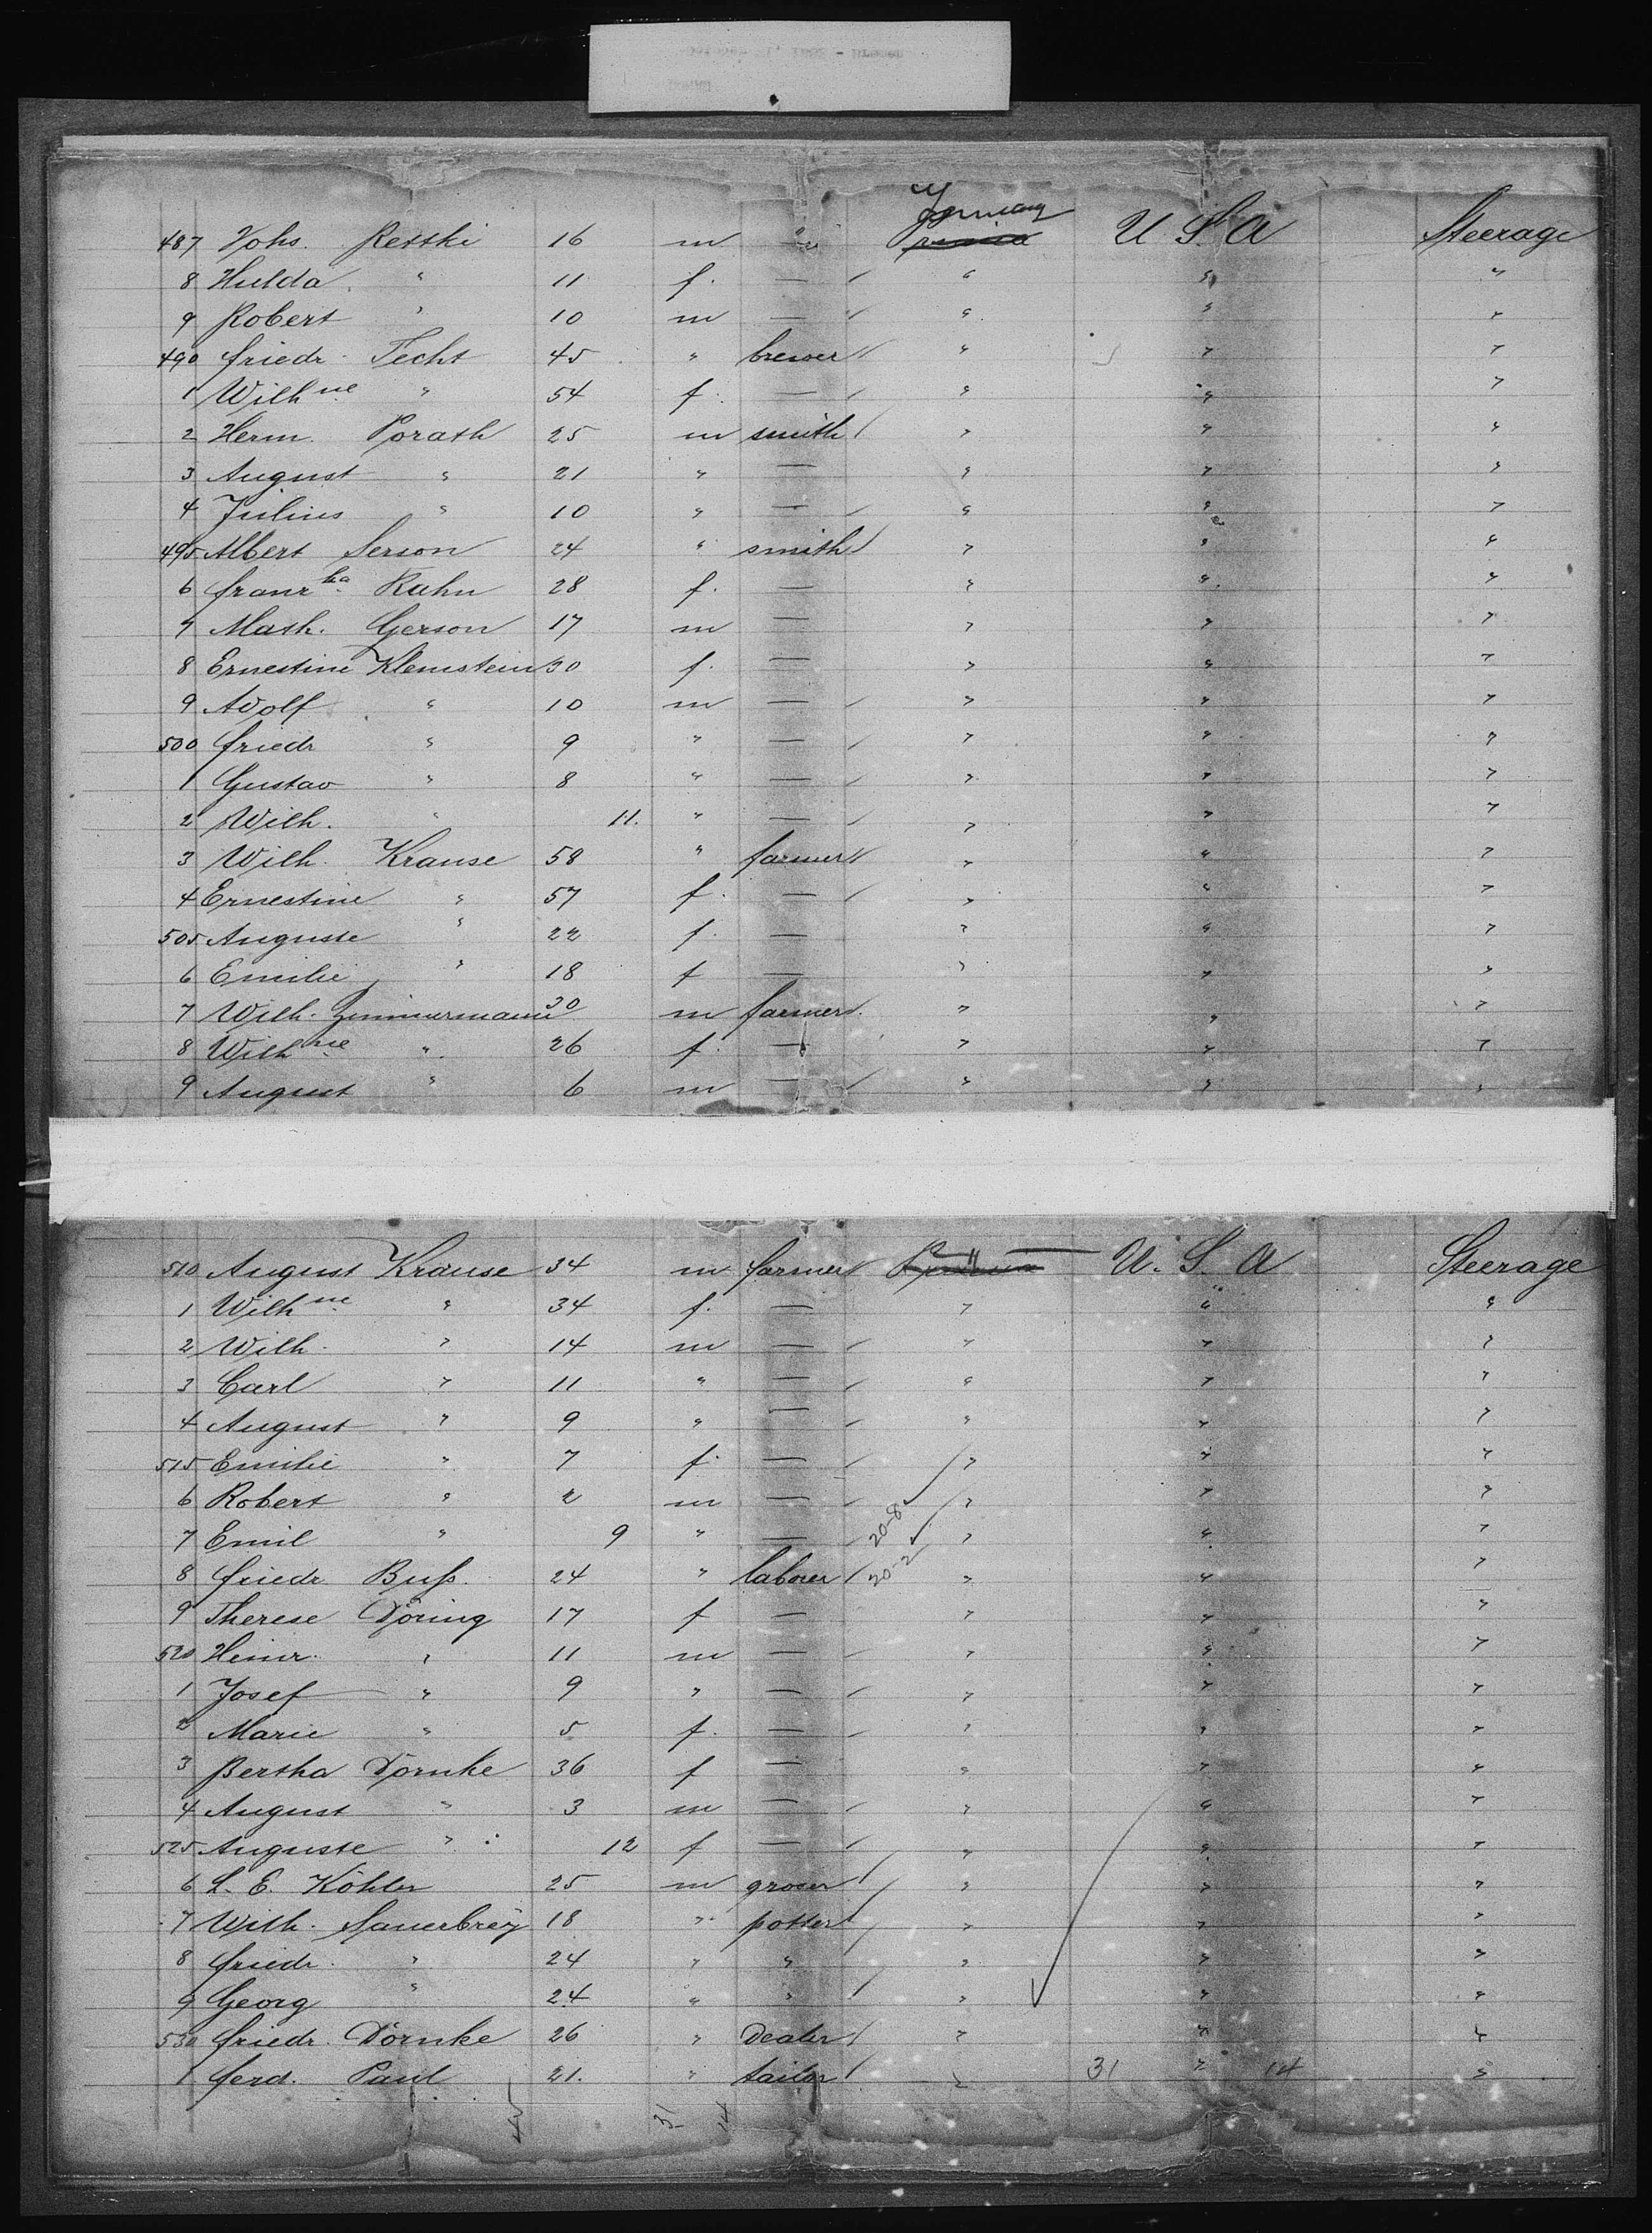 Germany
487 Johs. Retski 16 m " U S. A Steerage
8 Hulda " 11 f. — " " "
9 Robert " 10 m — " " "
490 Friedr. Techt 45 " brewer " " "
1 Wilhne " 54 f. — " " "
2 Herm. Porath 25 m smith " " "
3 August " 21 " — " " "
4 Julius " 10 " — " " "
495 Albert Serson 24 " smith " " "
6 Franzka Kuhn 28 f. — " " "
7 Math. Gerson 17 m — " " "
8 Ernestine Klemstein 30 f. — " " "
9 Adolf " 10 m — " " "
500 Friedr " 9 " — " " "
1 Gustav " 8 " — " " "
2 Wilh. " 11. " — " " "
3 Wilh. Krause 58 " farmer " " "
4 Ernestine " 57 f. — " " "
505 Auguste " 22 f. — " " "
6 Emilie " 18 f — " " "
7 Wilh. Zimmermann 30 m farmer " " "
8 Wilhne " 26 f. — " " "
9 August " 6 m — " " "
510 August Krause 34 m farmer " U. S. A Steerage
1 Wilhne " 34 f. — " " "
2 Wilh. " 14 m — " " "
3 Carl " 11 " — " " "
4 August " 9 " — " " "
515 Emilie " 7 f. — " " "
6 Robert " 2 m — " " "
7 Emil " 9 " — 20-8 " " "
8 Friedr Buß. 24 " laborer 20-2 " " "
9 Therese Döring 17 f — " " "
520 Heinr. " 11 m — " " "
1 Josef " 9 " — " " "
2 Marie " 5 f. — " " "
3 Bertha Dörnke 36 f — " " "
4 August " 3 m — " " "
525 Auguste " 12 f — " " "
6 L. E. Köhler 25 m groser " " "
7 Wilh. Sauerbrey 18 " potter " " "
8 Friedr. " 24 " " " " "
9 Georg " 24 " " " " "
530 Friedr. Dörnke 26 " Dealer " " "
1 Ferd. Paul 21. " tailor " 31 " 14 "
45 31 14